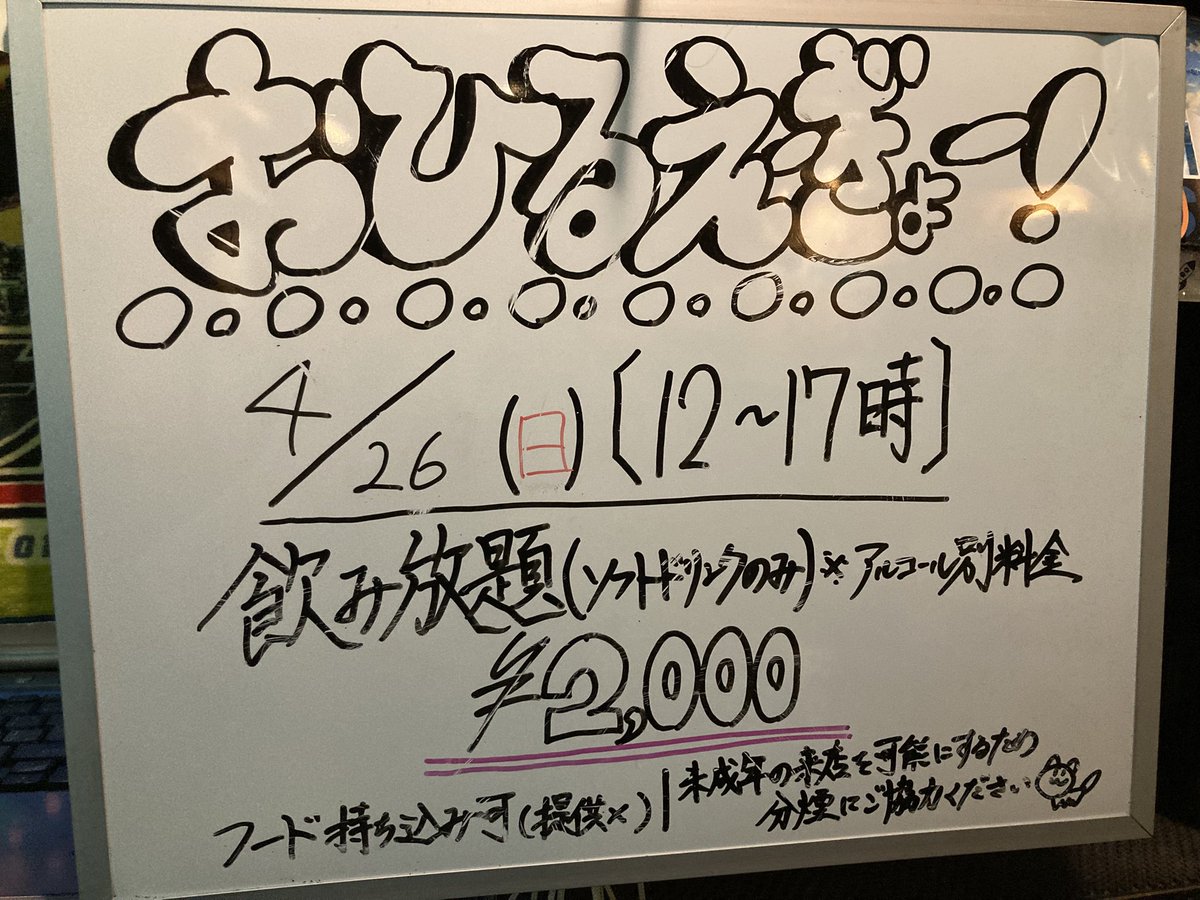 おひるえぎょー!
4/26(日)[12~17時]
飲み放題(ソフトドリンクのみ)※アルコール別料金
¥2,000
フード持ち込み可(提供×)
未成年の来店を可能にするため
分煙にご協力ください